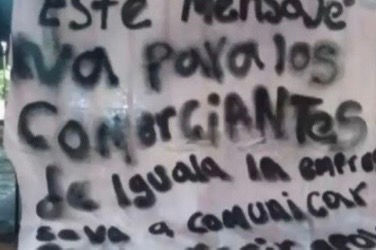 Este mensaje
va para los
ComerciANTes
de Iguala la empre
se va a comunicar